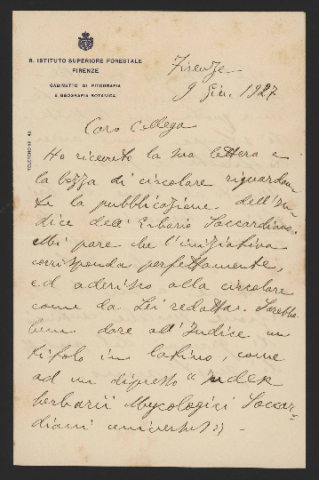 R. ISTITUTO SUPERIORE FORESTALE
FIRENZE
GABINETTO DI FITOGRAFIA
E GEOGRAFIA BOTANICA
Firenze
9 Giu. 1927
Caro Collega
Ho ricevuto la sua lettera e
la bozza di circolare riguardan-
te la pubblicazione dell'In-
dice dell'Erbario Saccardiano.
Mi pare che l'iniziativa
corrisponda perfettamente,
ed aderisco alla circolare
come da Lei redatta. Sarebbe
bene dare all'Indice un
titolo in latino, come
ad un dipresso "Index
herbarii Mycologici Saccar-
diani universi;